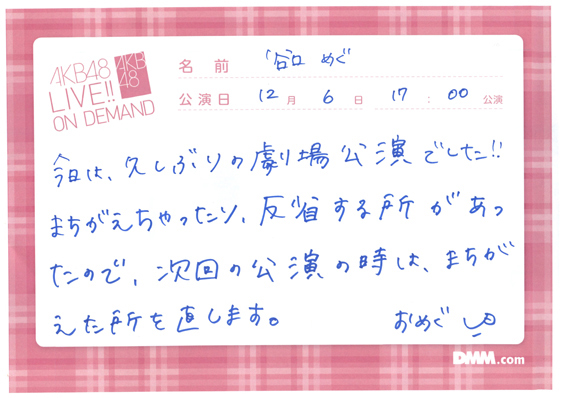 AKB48
LIVE!!
ON DEMAND
AKB
48
名前 谷口 めぐ
公演日 12月 6日 17:00 公演
今日は、久しぶりの劇場公演でした!!
まちがえちゃったり、反省する所があっ
たので、次回の公演の時は、まちが
えた所を直します。 おめぐ
DMM.com